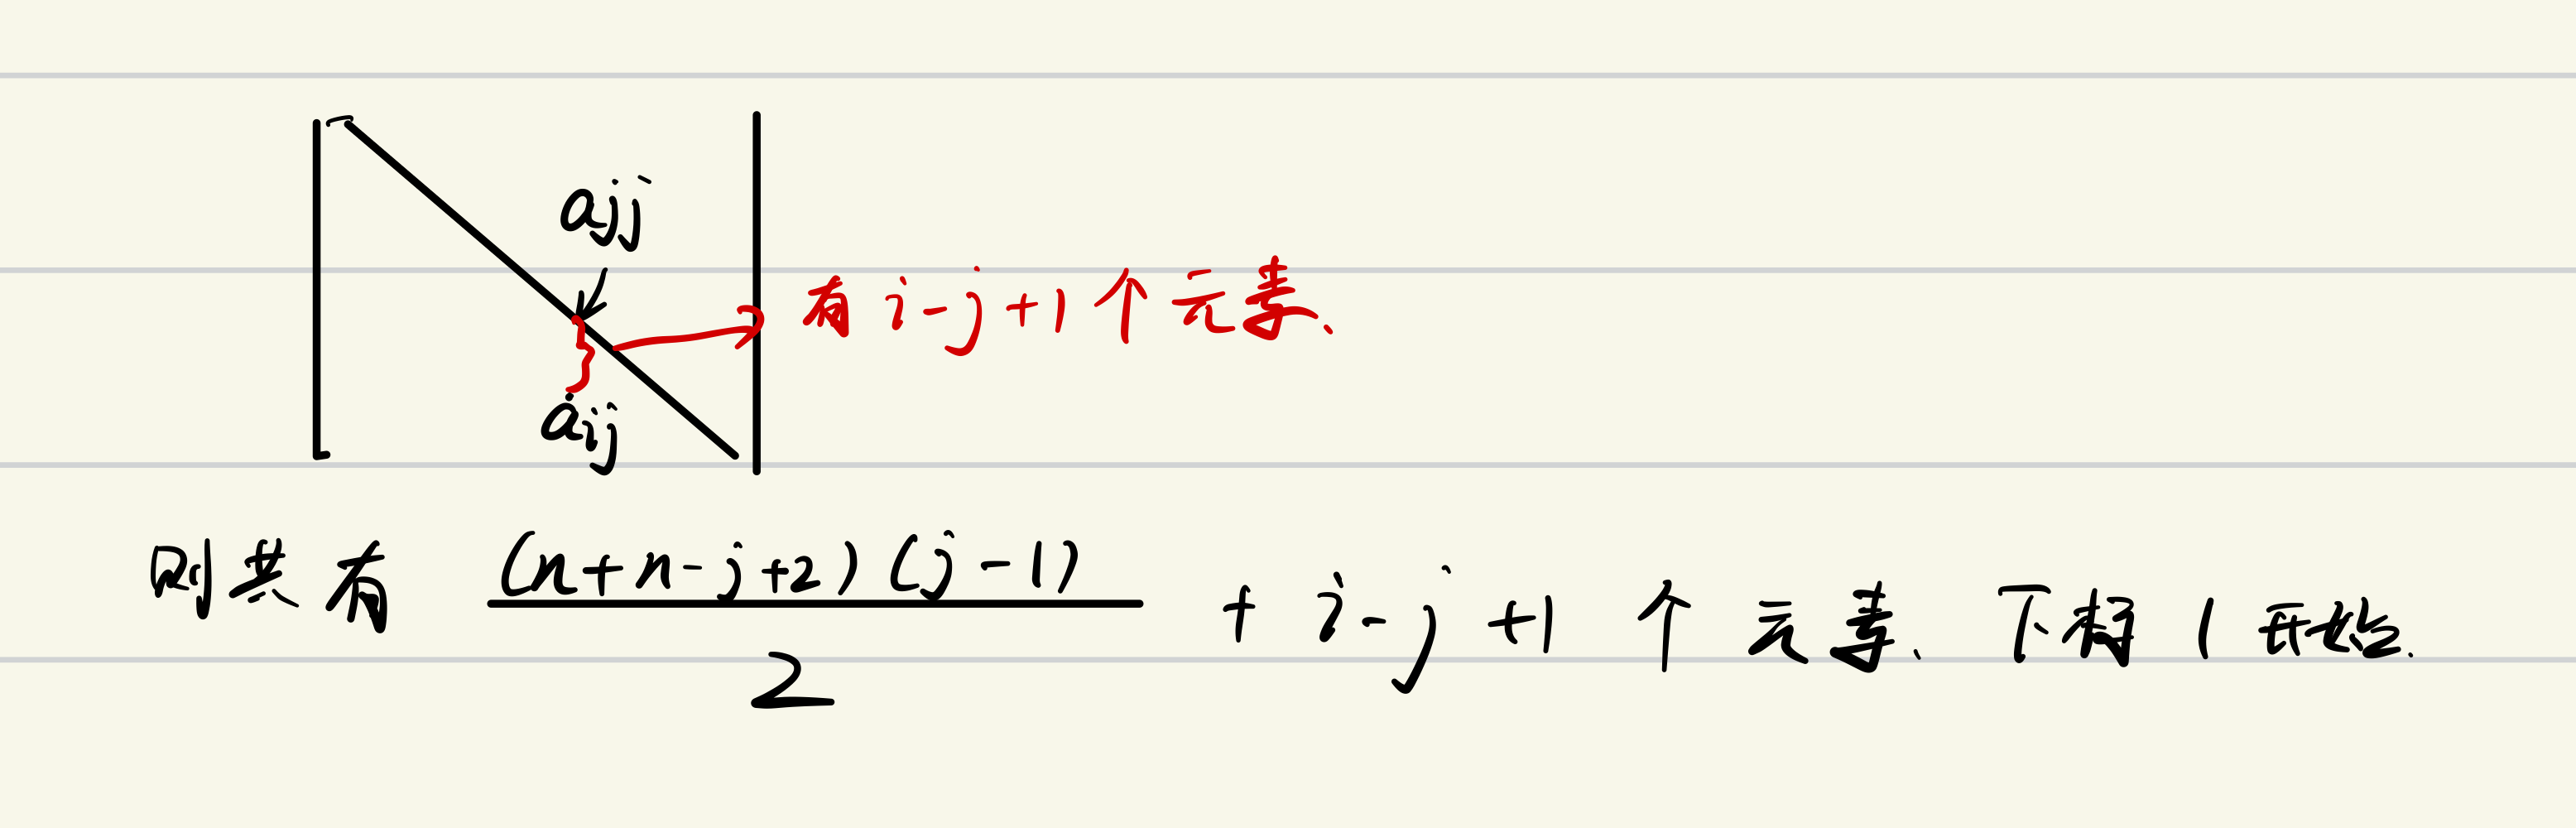 ajj
有 i-j+1 个元素、
aij
则共有 (n+n-j+2)(j-1) / 2 + i-j+1 个元素、下标 1 开始.